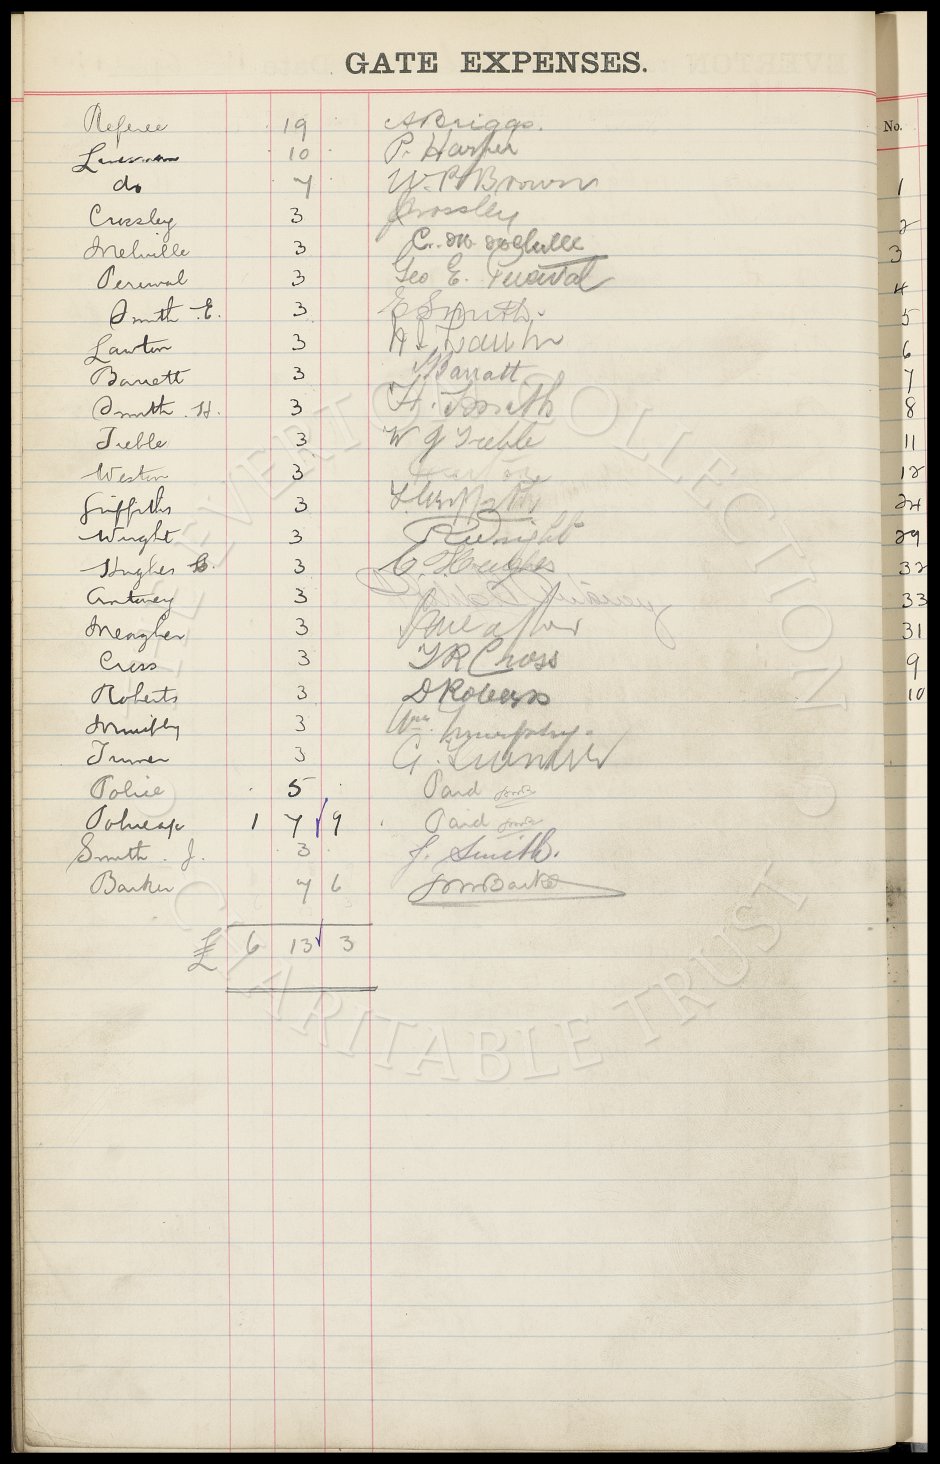 GATE EXPENSES.
Referee 19 A Briggs.
Linesman 10 P. Harper
do 7 W. P. Brown
Crossley 3 Crossley
Melville 3
Percival 3 Geo E. Percival
Smith E. 3 E Smith.
Lawton 3
Barrett 3 Barratt
Smith. H. 3 H. Smith
Treble 3 W J Treble
Weston 3
Griffiths 3
Wright 3 R Wright
Hughes C. 3 C. Hughes
Antiney 3
Meagher 3
Cross 3 T R Cross
Roberts 3 D Roberts
3 Wm. Murphy.
Turner 3 G. Turner
Police 5 Paid JWB
1 7 9 Paid JWB
Smith. J. 3 J. Smith.
Barker 7 6 Barker
£ 6 13 3
No.
1
2
3
4
5
6
7
8
11
12
24
29
32
33
31
9
10
THE EVERTON COLLECTION
CHARITABLE TRUST